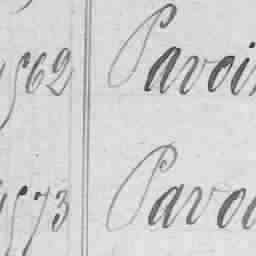 1562 Pavoi
1573 Pavo